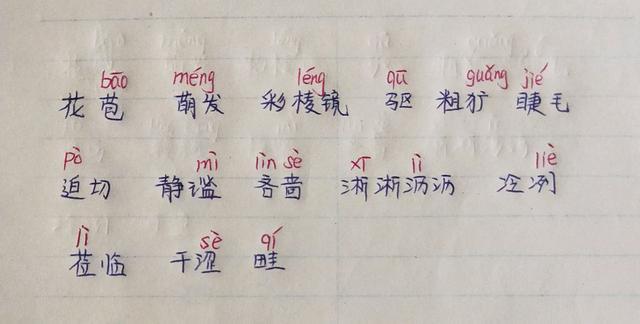 bāo méng léng qū guǎng jié
花苞 萌发 彩棱镜 驱 粗犷 睫毛
pò mì lìn sè xī lì liè
迫切 静谧 吝啬 淅淅沥沥 冷冽
lì sè qí
莅临 干涩 畦